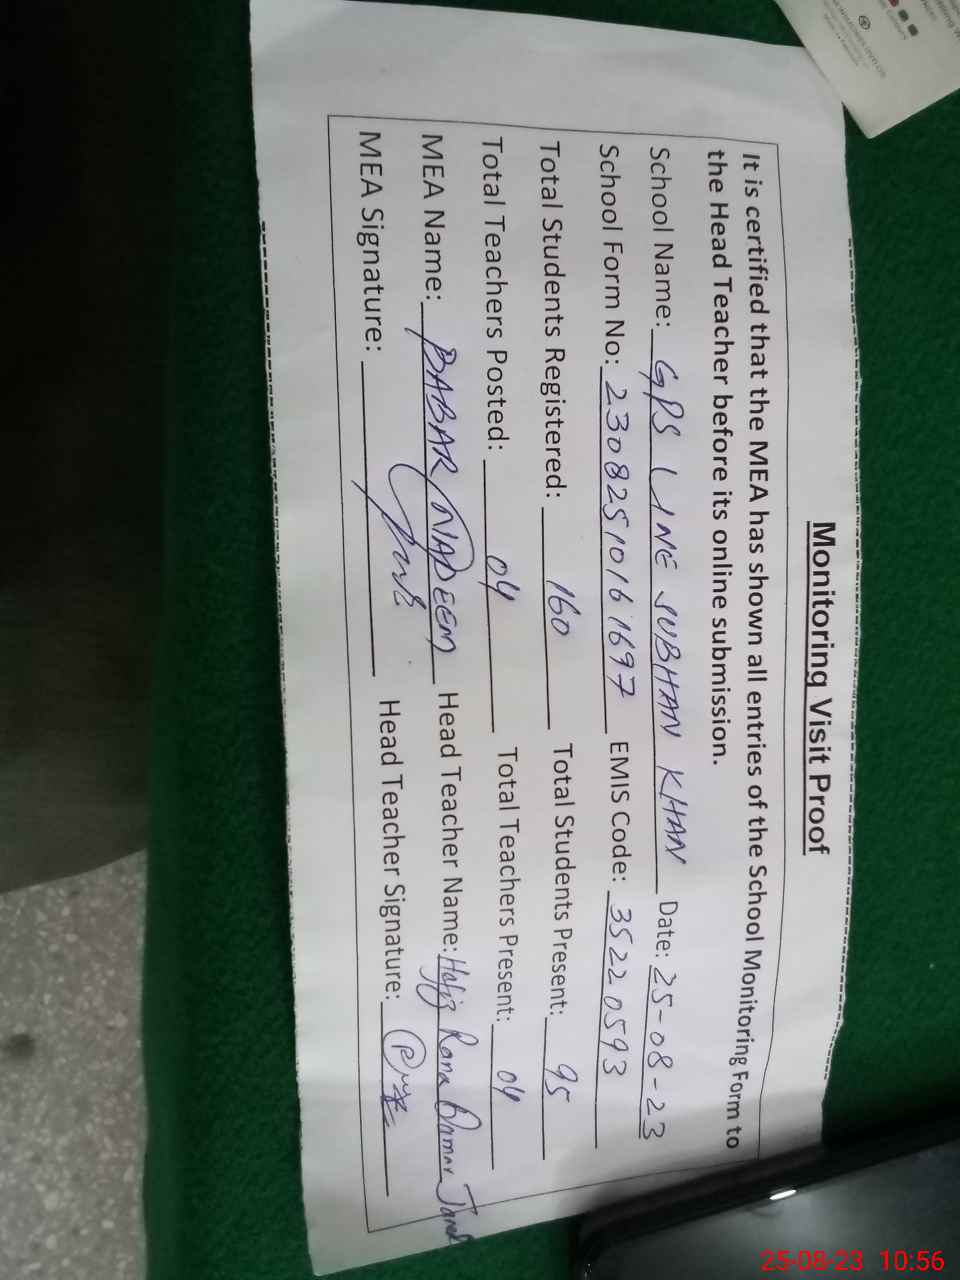 Monitoring Visit Proof
It is certified that the MEA has shown all entries of the School Monitoring Form to
the Head Teacher before its online submission.
School Name: GPS LINE SUBHAN KHAN Date: 25-08-23
School Form No: 2308251016 1697 EMIS Code: 35220593
Total Students Registered: 160 Total Students Present: 95
Total Teachers Posted: 04 Total Teachers Present: 04
MEA Name: BABAR NADEEM Head Teacher Name: Hafiz Rana
MEA Signature: Head Teacher Signature:
25-08-23 10:56